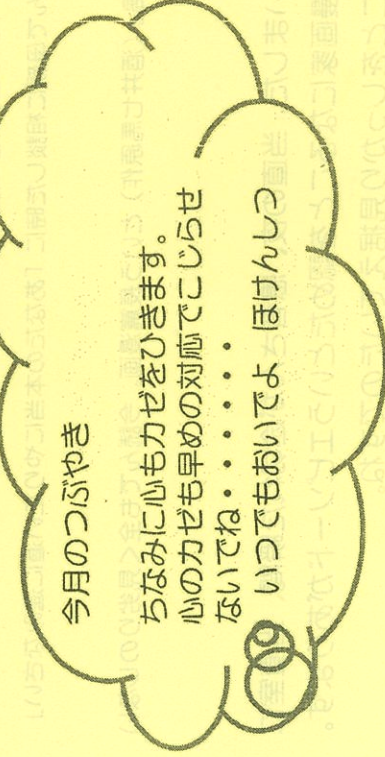 今月のつぶやき
ちなみに心もカゼをひきます。
心のカゼも早めの対応でこじらせ
ないでね・・・・・・・
いつでもおいでよ ほけんしつ